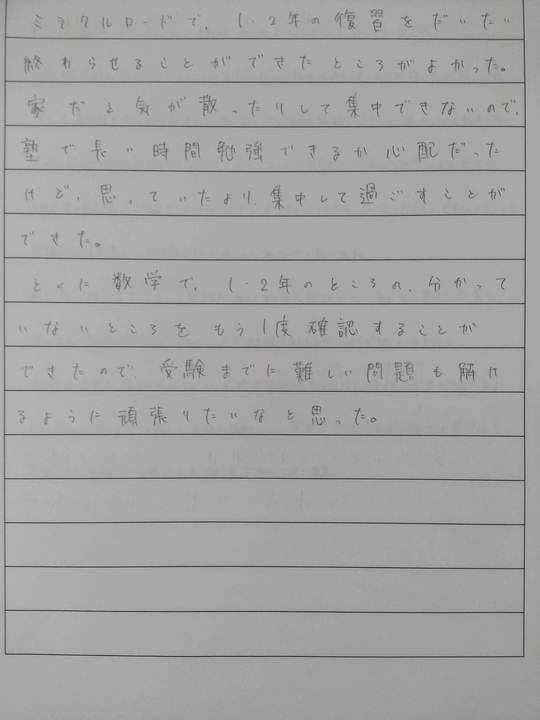 ミラクルロードで、1・2年の復習をだいたい
終わらせることができたところがよかった。
家だと気が散ったりして集中できないので、
塾で長い時間勉強できるか心配だった
けど、思っていたより、集中して過ごすことが
できた。
とくに数学で、1・2年のところの、分かって
いないところをもう1度確認することが
できたので、受験までに難しい問題も解け
るように頑張りたいなと思った。